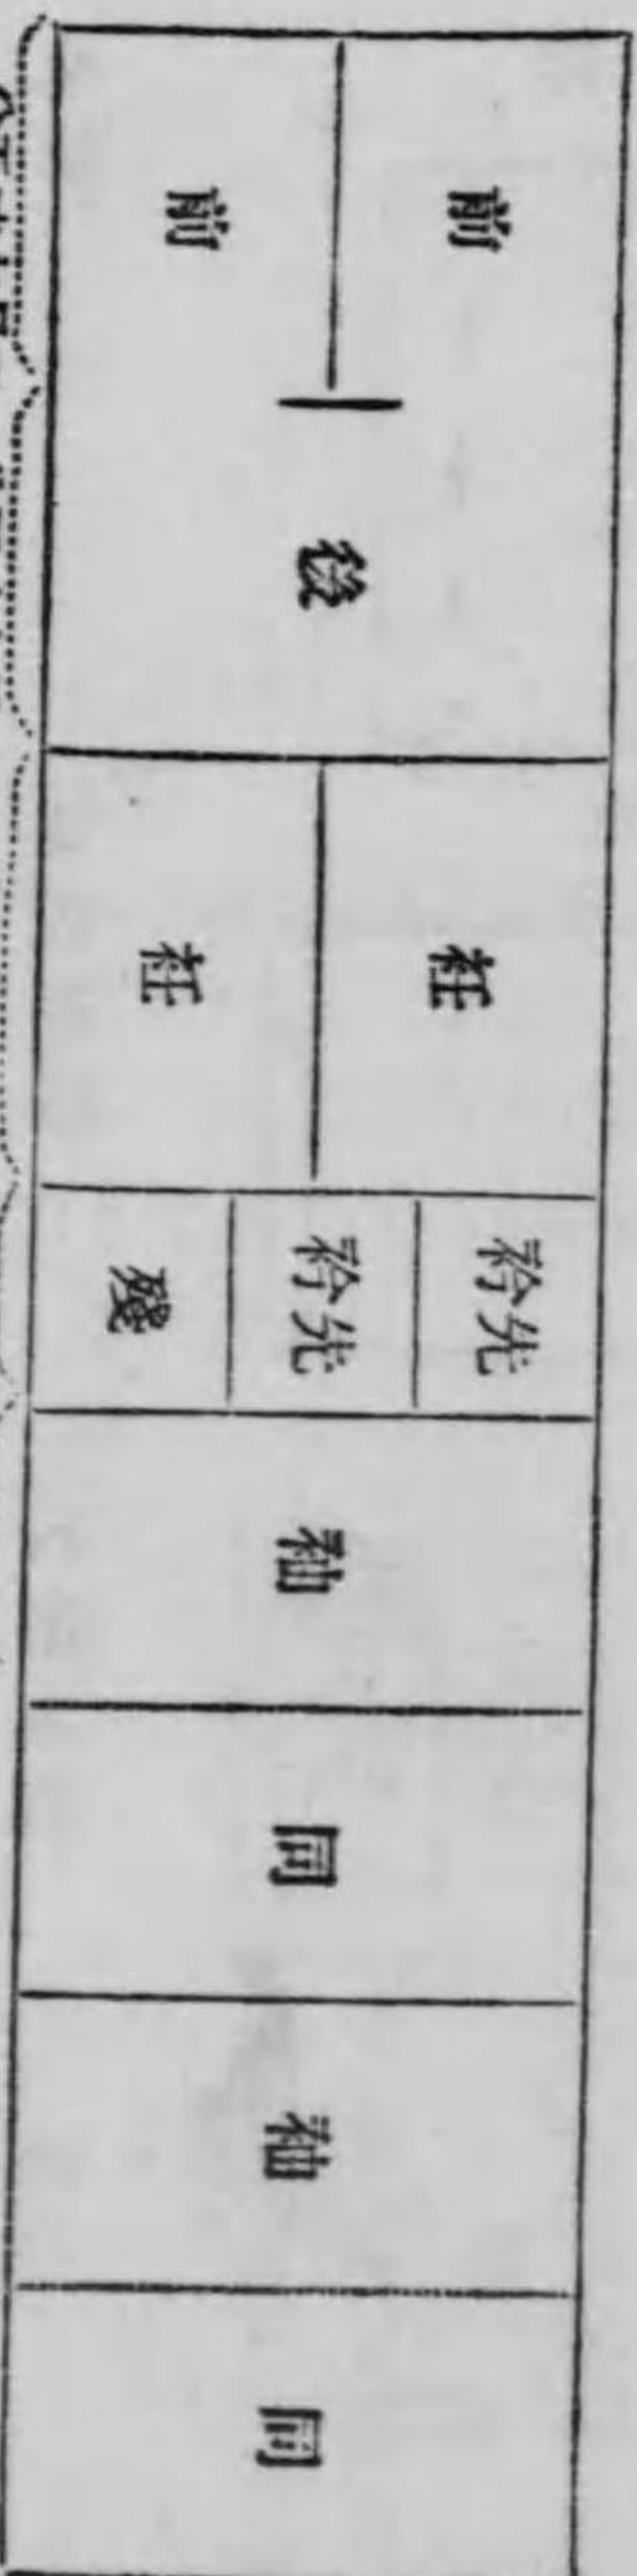 前
前
後
衽
衽
衿先
衿先
殘
袖
同
袖
同